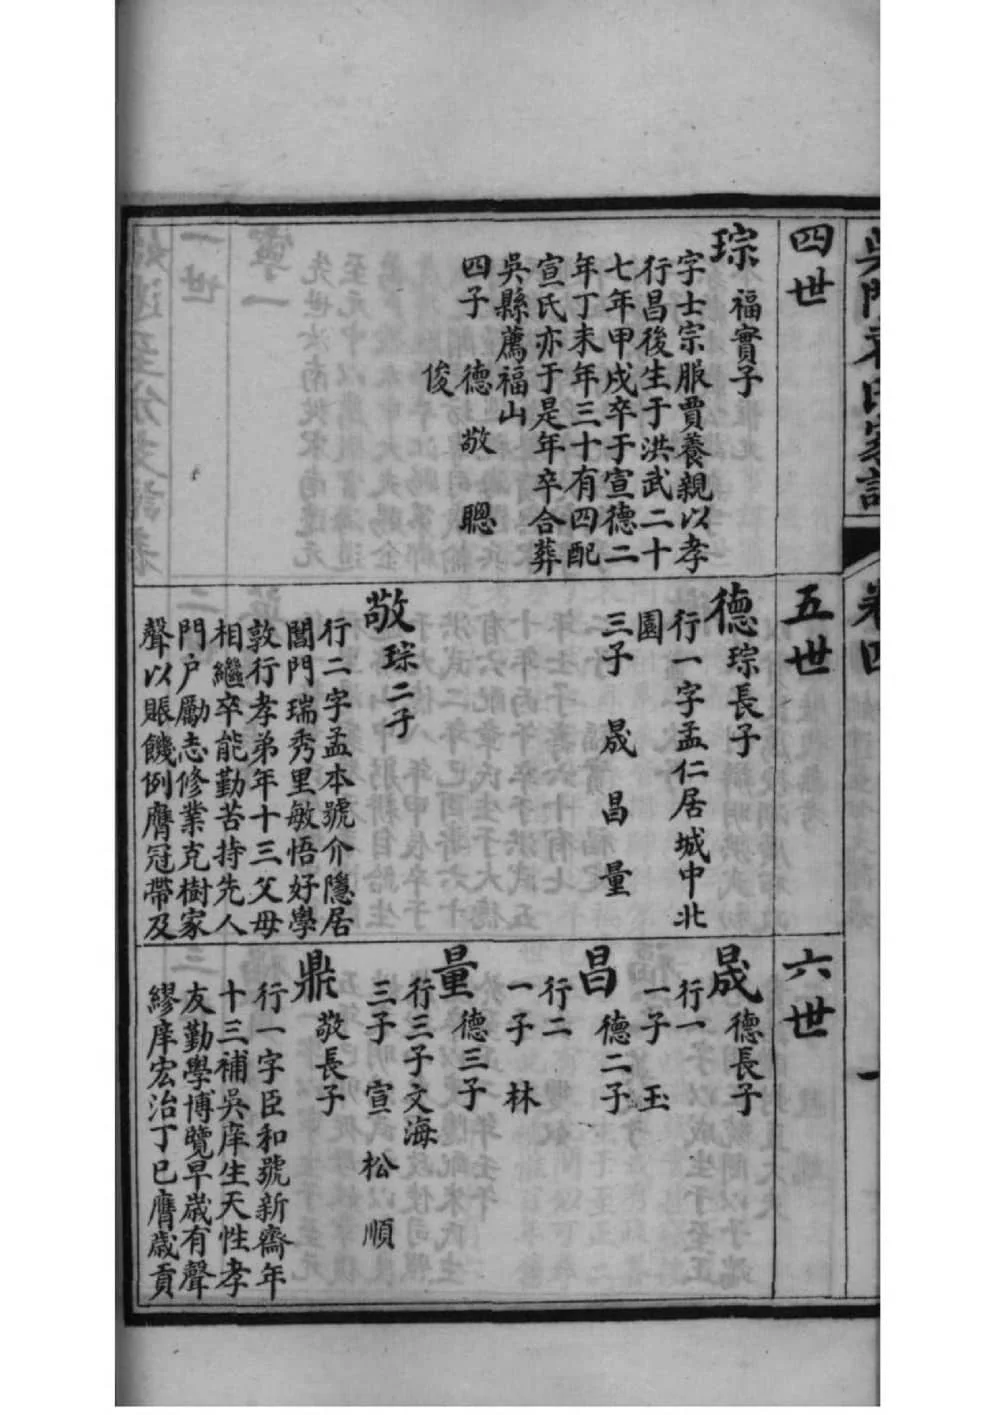 四世
琮 福實子
字士宗服賈養親以孝
行昌後生于洪武二十
七年甲戌卒于宣德二
年丁未年三十有四配
宣氏亦于是年卒合葬
吳縣薦福山
四子 德 敬 聰
俊
五世
德 琮長子
行一字孟仁居城中北
園
三子 晟 昌 量
敬 琮二子
行二字孟本號介隱居
閶門瑞秀里敏悟好學
敦行孝弟年十三父母
相繼卒能勤苦持先人
門户勵志修業克樹家
聲以賑饑例膺冠帶及
六世
晟 德長子
行一
一子 玉
昌 德二子
行二
一子 林
量 德三子
行三字文海
三子 宣 松 順
鼎 敬長子
行一字臣和號新齋年
十三補吳庠生天性孝
友勤學博覽早歲有聲
繆庠宏治丁巳膺歲貢
卷四
一